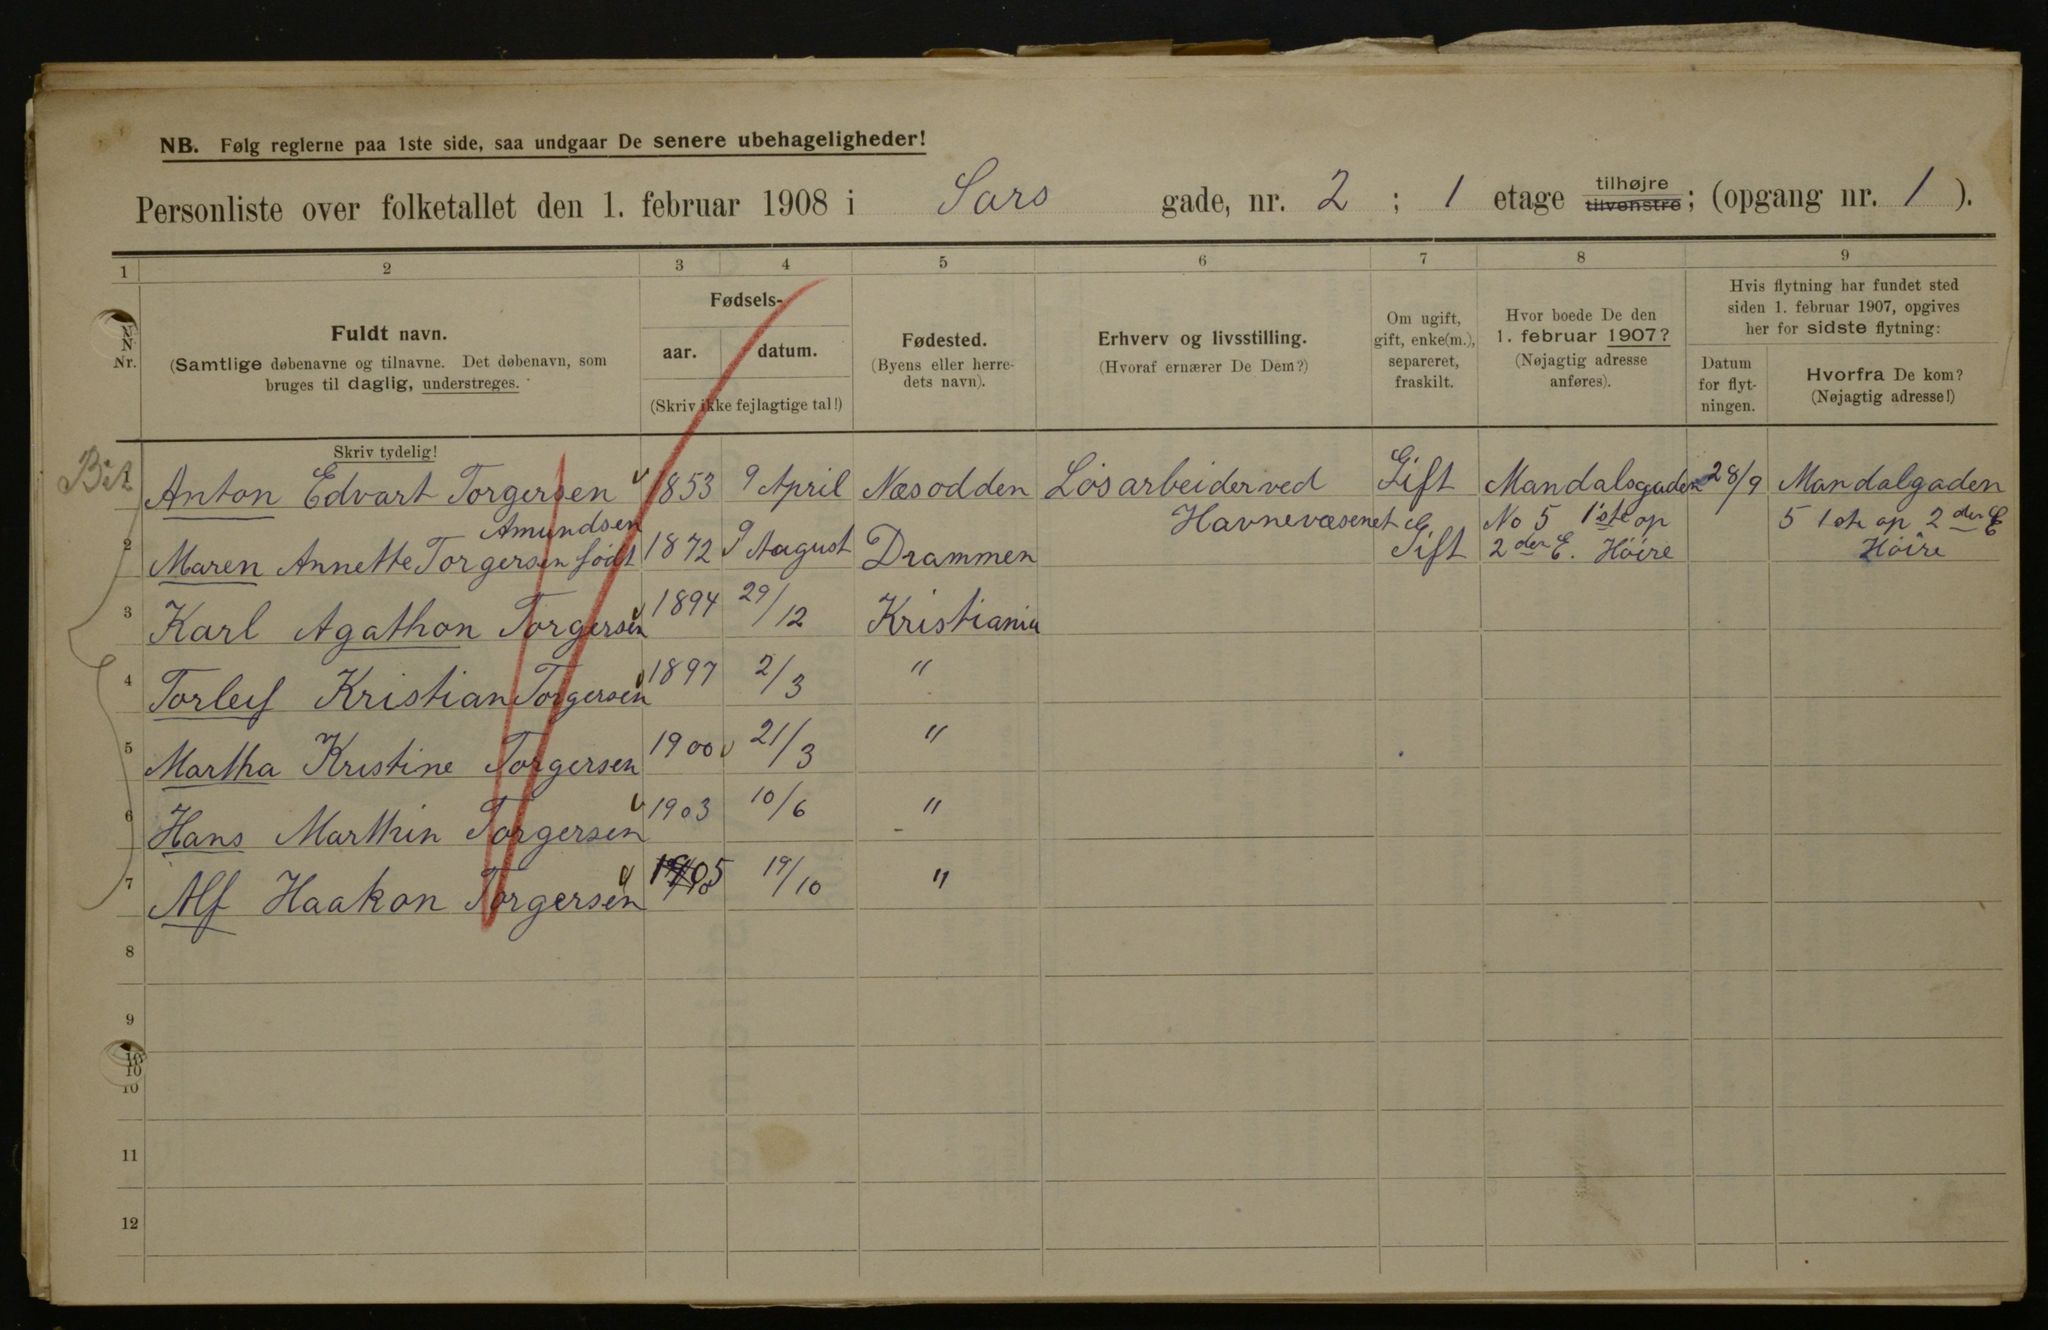 NB. Følg reglerne paa 1ste side, saa undgaar De senere ubehageligheder!
Personliste over folketallet den 1. februar 1908 i Sars gade, nr. 2 ; 1 etage tilhøjre tilvenstre; (opgang nr. 1 ).
1 2 3 4 5 6 7 8 9
Nr.
Fuldt navn.
(Samtlige døbenavne og tilnavne. Det døbenavn, som
bruges til daglig, understreges.
Skriv tydelig!
Fødsels-
aar. datum.
(Skriv ikke fejlagtige tal!)
Fødested.
(Byens eller herre-
dets navn).
Erhverv og livsstilling.
(Hvoraf ernærer De Dem?)
Om ugift,
gift, enke(m.),
separeret,
fraskilt.
Hvor boede De den
1. februar 1907?
(Nøjagtig adresse
anføres).
Hvis flytning har fundet sted
siden 1. februar 1907, opgives
her for sidste flytning:
Datum
for flyt-
ningen.
Hvorfra De kom?
(Nøjagtig adresse!)
1 Anton Edvart Torgersen 1853 9 April Næsodden Løsarbeider ved Gift Mandalsgaden 28/9 Mandalgaden
Amundsen Havnevæsenet No 5 1ste op 5 1ste op 2den E
2 Maren Annette Torgersen født 1872 9 August Drammen Gift 2den E. Höire Höire
3 Karl Agathon Torgersen 1894 29/12 Kristiania
4 Torleif Kristian Torgersen 1897 2/3 "
5 Martha Kristine Torgersen 1900 21/3 "
6 Hans Marthin Torgersen 1903 10/6 "
7 Alf Haakon Torgersen 1905 19/10 "
8
9
10
10
10
11
12